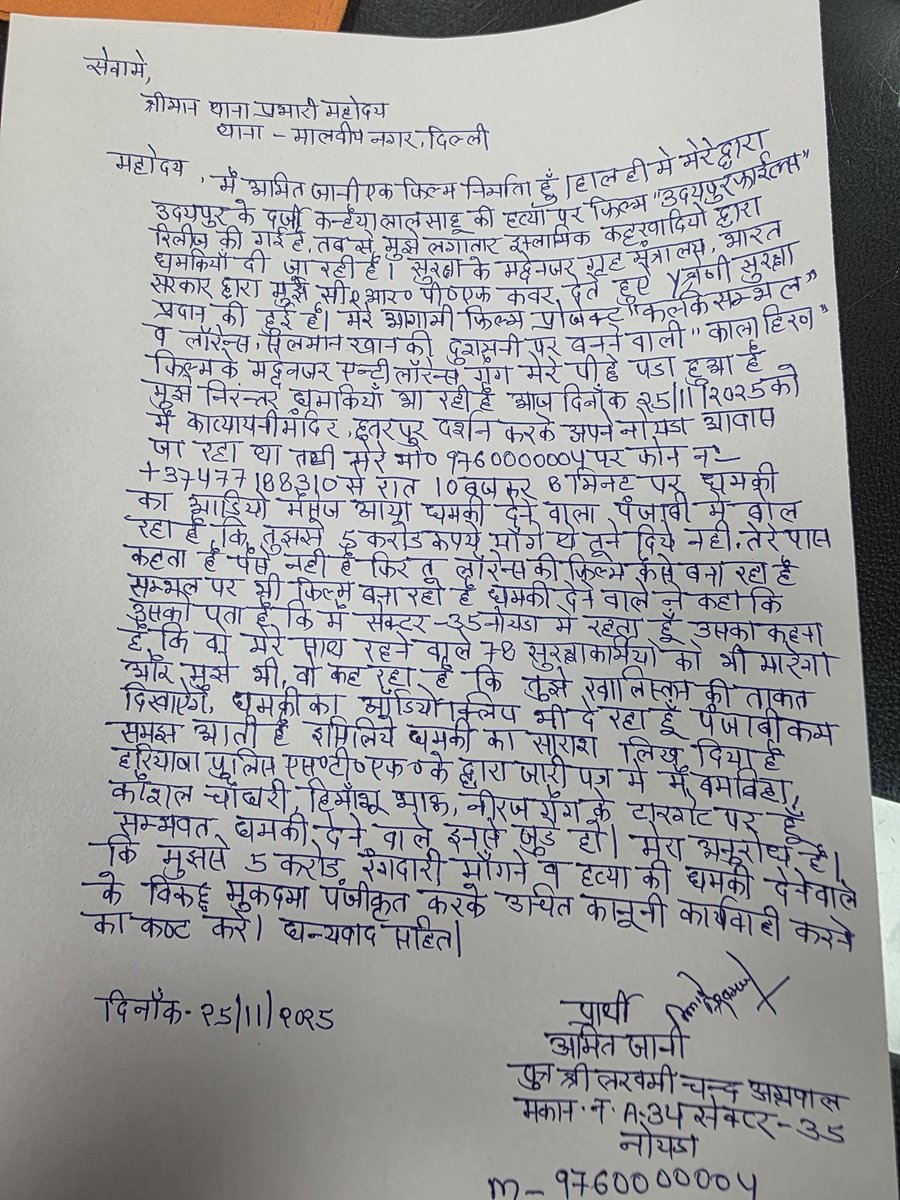 सेवामे,
श्रीमान थाना प्रभारी महोदय
थाना - मालवीय नगर, दिल्ली
महोदय, मैं अमित जानी एक फिल्म निर्माता हूँ। हाल ही मे मेरे द्वारा
उदयपुर के दर्जी कन्हैया लाल साहू की हत्या पर फिल्म "उदयपुर फाईल्स"
रिलीज की गई है, तब से मुझे लगातार इस्लामिक कट्टरवादियो द्वारा
धमकियाँ दी जा रही है। सुरक्षा के मद्देनजर गृह मंत्रालय, भारत
सरकार द्वारा मुझे सी०आर०पी०एफ कवर देते हुए Y श्रेणी सुरक्षा
प्रदान की हुई है। मेरे आगामी फिल्म प्रोजेक्ट "कल्कि सम्भल"
व लॉरेन्स, सलमान खान की दुश्मनी पर बनने वाली "काला हिरण"
फिल्म के मद्देनजर एन्टी लॉरेन्स गैंग मेरे पीछे पडा हुआ है
मुझे निरन्तर धमकियाँ आ रही है आज दिनाँक २5/11/२०२5 को
मैं कात्यायनी मंदिर, छतरपुर दर्शन करके अपने नोयडा आवास
जा रहा था तभी मेरे मो० 9760000004 पर फोन नं:-
+37477188310 से रात 10 बजकर 8 मिनट पर धमकी
का आडियो मैसेज आया धमकी देने वाला पंजाबी मे बोल
रहा है, कि तुझसे 5 करोड रूपये माँगे थे तूने दिये नही. तेरे पास
कहता है पैसे नही है फिर तू लॉरेन्स की फिल्म कैसे बना रहा है
सम्भल पर भी फिल्म बना रहा है धमकी देने वाले ने कहा कि
उसको पता है कि मैं सेक्टर-35 नोयडा मे रहता हूँ उसका कहना
है कि वो मेरे साथ रहने वाले 78 सुरक्षाकर्मियो को भी मारेगा
और मुझे भी, वो कह रहा है कि तुझे खालिस्तान की ताकत
दिखाऐंगे, धमकी का आडियो क्लिप भी दे रहा हूँ पंजाबी कम
समझ आती है इसलिये धमकी का सारांश लिख दिया है
हरियाणा पुलिस एस०टी०एफ० के द्वारा जारी पत्र मे मैं बमबिहा,
कौशल चौधरी, हिमाँशू भाऊ, नीरज गैंग के टारगेट पर हूँ
सम्भवत धमकी देने वाले इनसे जुडे हो। मेरा अनुरोध है।
कि मुझसे 5 करोड रंगदारी माँगने व हत्या की धमकी देने वाले
के विरूद्ध मुकदमा पंजीकृत करके उचित कानूनी कार्यवाही करने
का कष्ट करे। धन्यवाद सहित।
दिनाँक - २5/11/२०२5
प्रार्थी
अमित जानी
पुत्र श्री लख्मी चन्द अग्रपाल
मकान नं A-34 सेक्टर-35
नोयडा
m- 9760000004